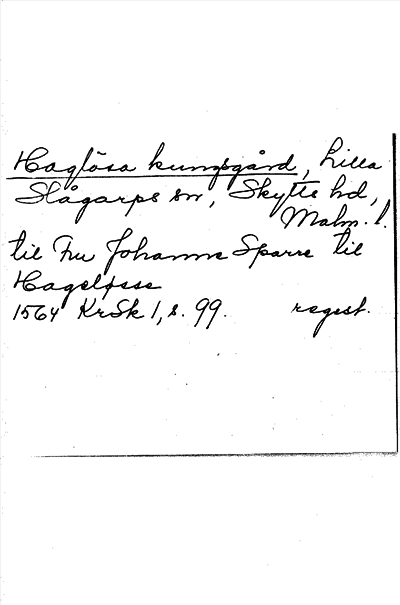 Haglösa kungsgård, Lilla
Slågarps sn, Skytts hd,
Malm. l.
til Fru Johanne Sparre til
Hageløsse
1564 KrSk 1, s. 99. regest.